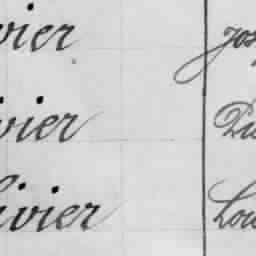 vier Jos
ivier Du
livier Lou